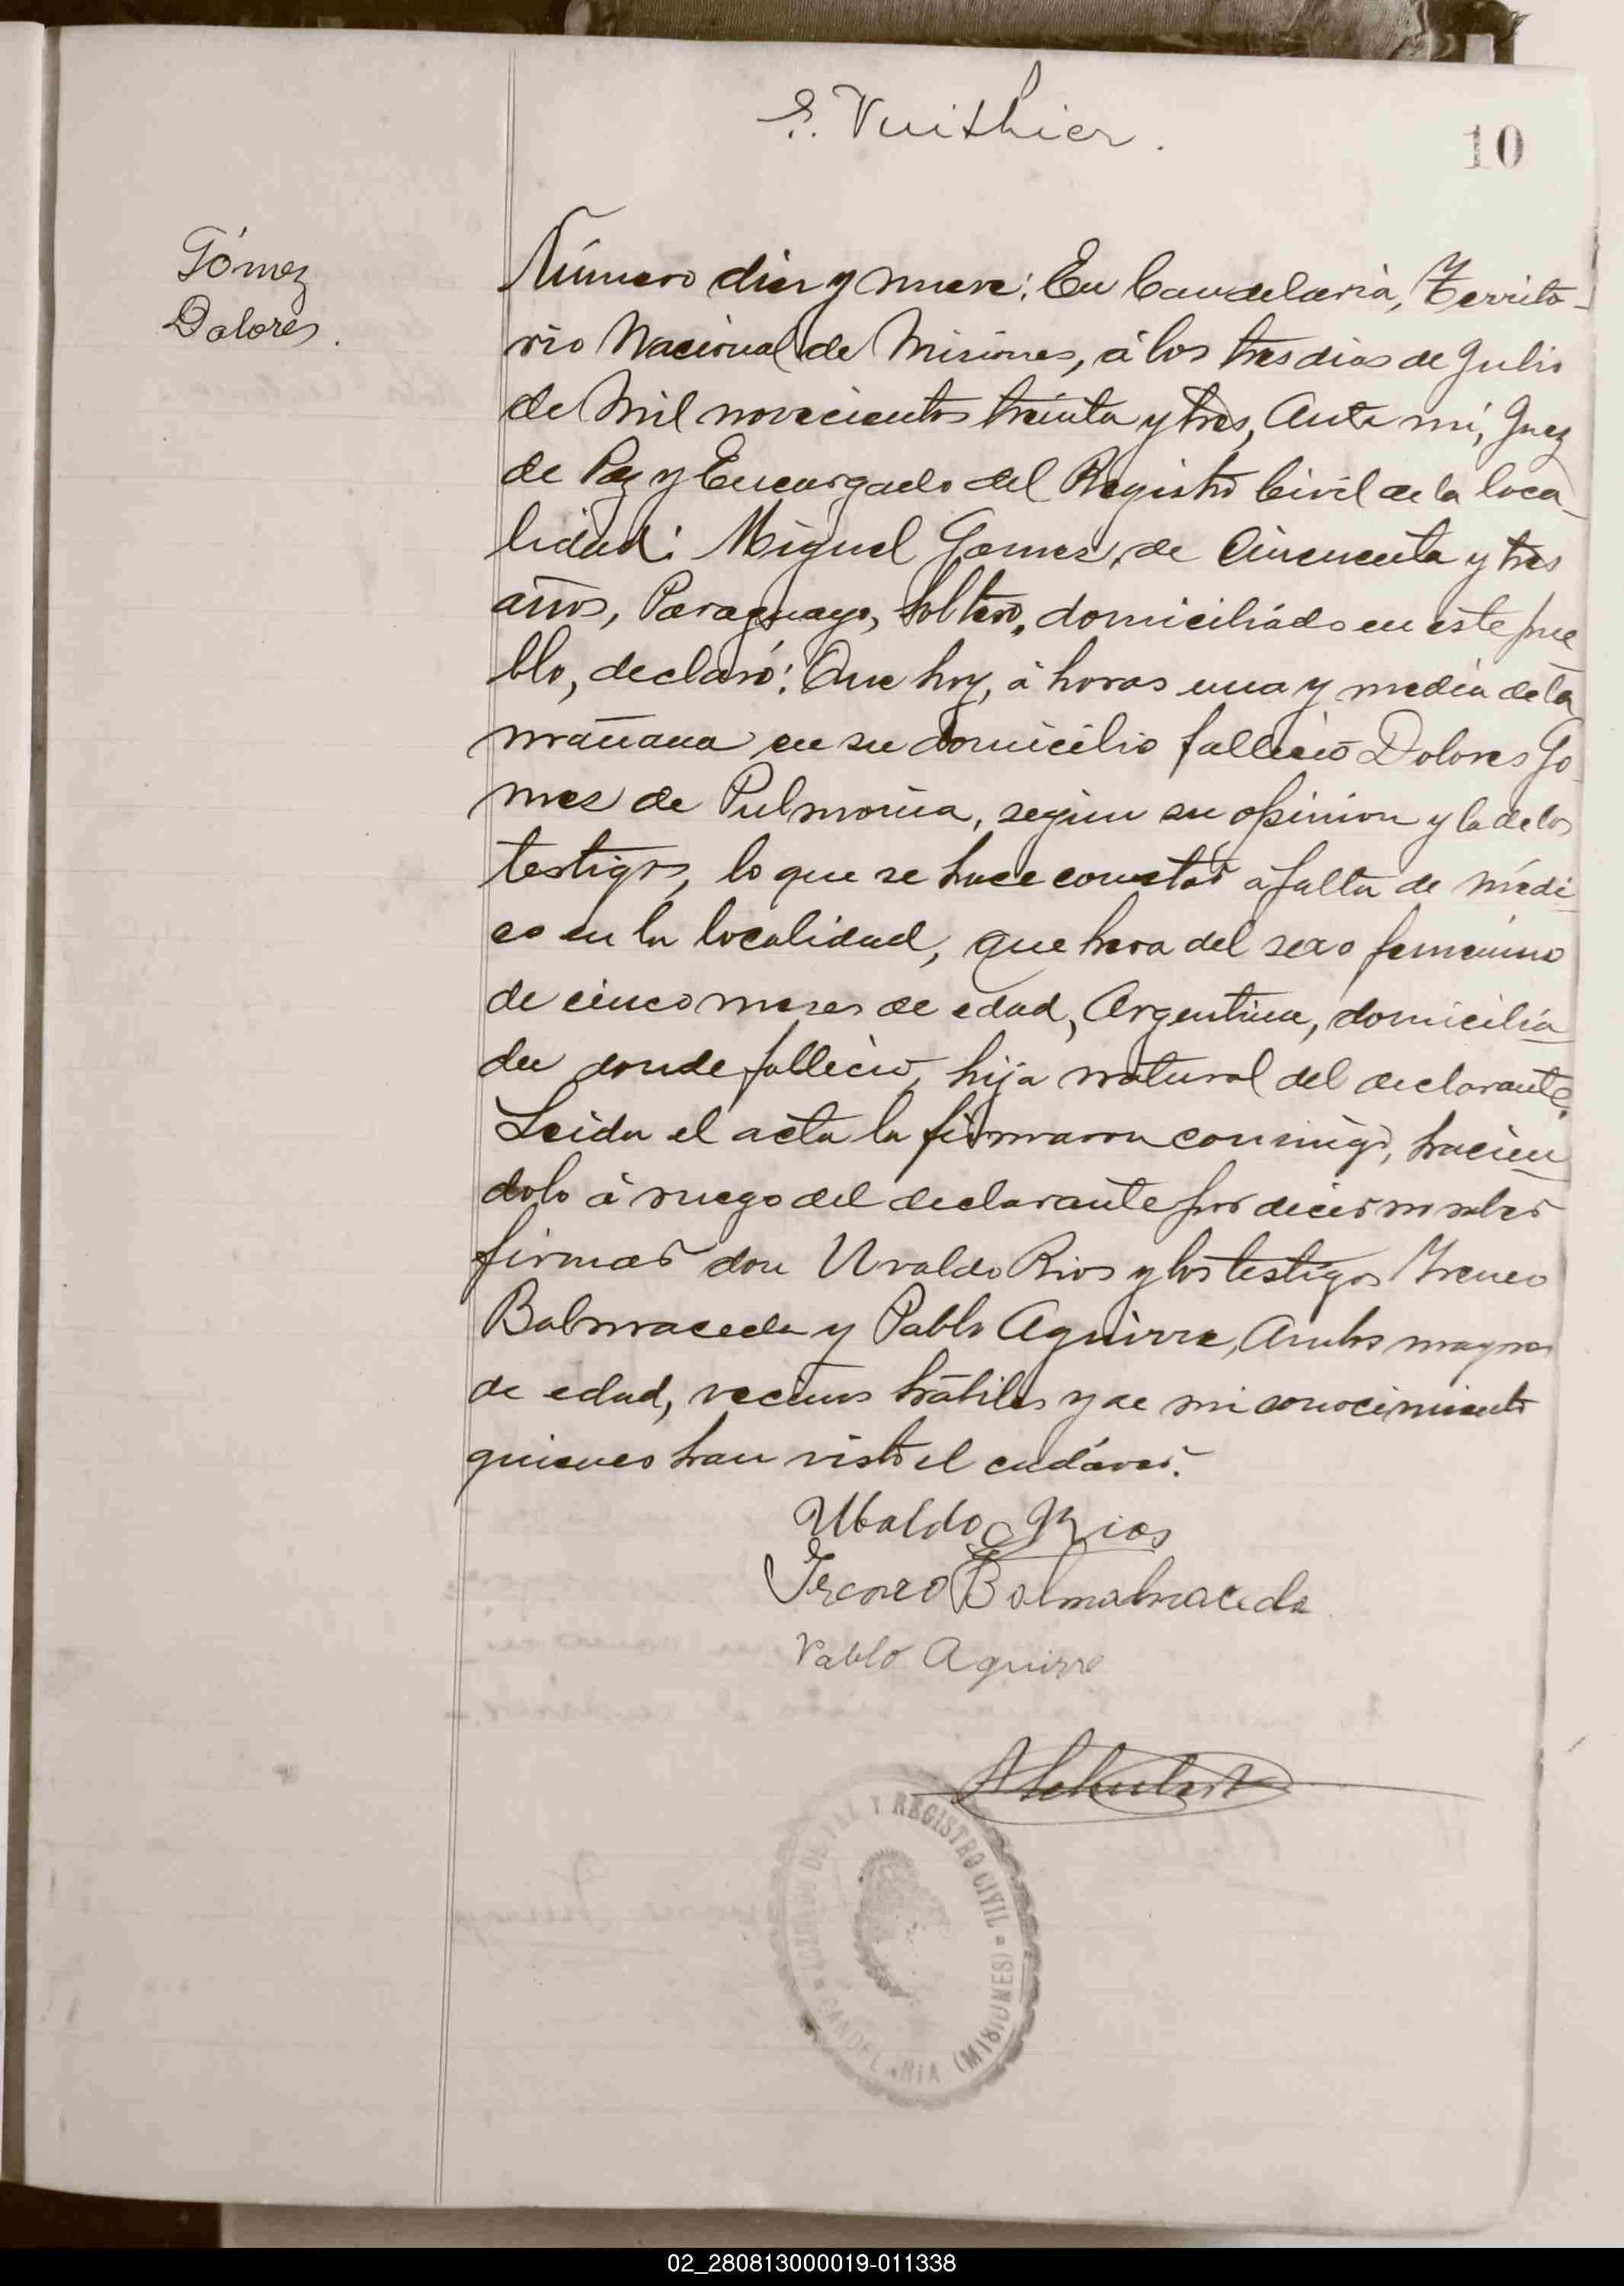 E. Vuithier.
10
Gómez
Dolores.
Número diez y nueve: En Candelaria, Territo-
rio Nacional de Misiones, á los tres dias de Julio
de Mil novecientos treinta y tres, Ante mi, Juez
de Paz y Encargado del Registro Civil de la loca-
lidad: Miguel Gomes, de Cincuenta y tres
años, Paraguayo, Soltero, domiciliádo en este pue
blo, declaró: Que hoy, á horas una y media de la
mañana en su domicilio falleció Dolores Go-
mes de Pulmonia, segun su opinion y la de los
testigos, lo que se hace constar á falta de médi-
co en la localidad, que hera del sexo femenino
de cinco meses de edad, Argentina, domicilia-
da donde falleció, hija natural del declarante.
Leida el acta la firmaron conmigo, hacien-
dolo á ruego del declarante por decir no saber
firmar don Uvaldo Rios y los testigos Yreneo
Balmaceda y Pablo Aguirre, Ambos mayores
de edad, vecinos hábiles y de mi conocimiento
quienes han visto el cadáver.
Ubaldo Rios
Ireneo Balmabraceda
Pablo Aguirre
JUZGADO DE PAZ Y REGISTRO CIVIL
CANDELARIA (MISIONES)
02_280813000019-011338